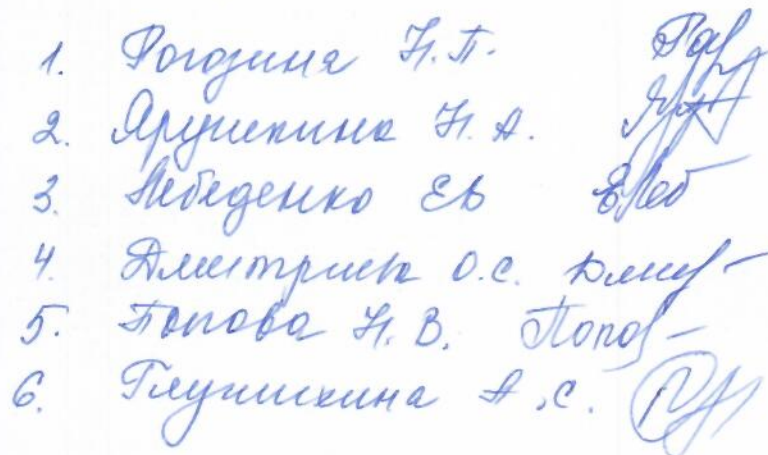 1. Рогозина Н.П.
2. Ярушкина Н.А.
3. Лебеденко ЕВ Елеб
4. Дмитриева О.С.
5. Попова Н.В. Попов
6. Глушихина А.С.